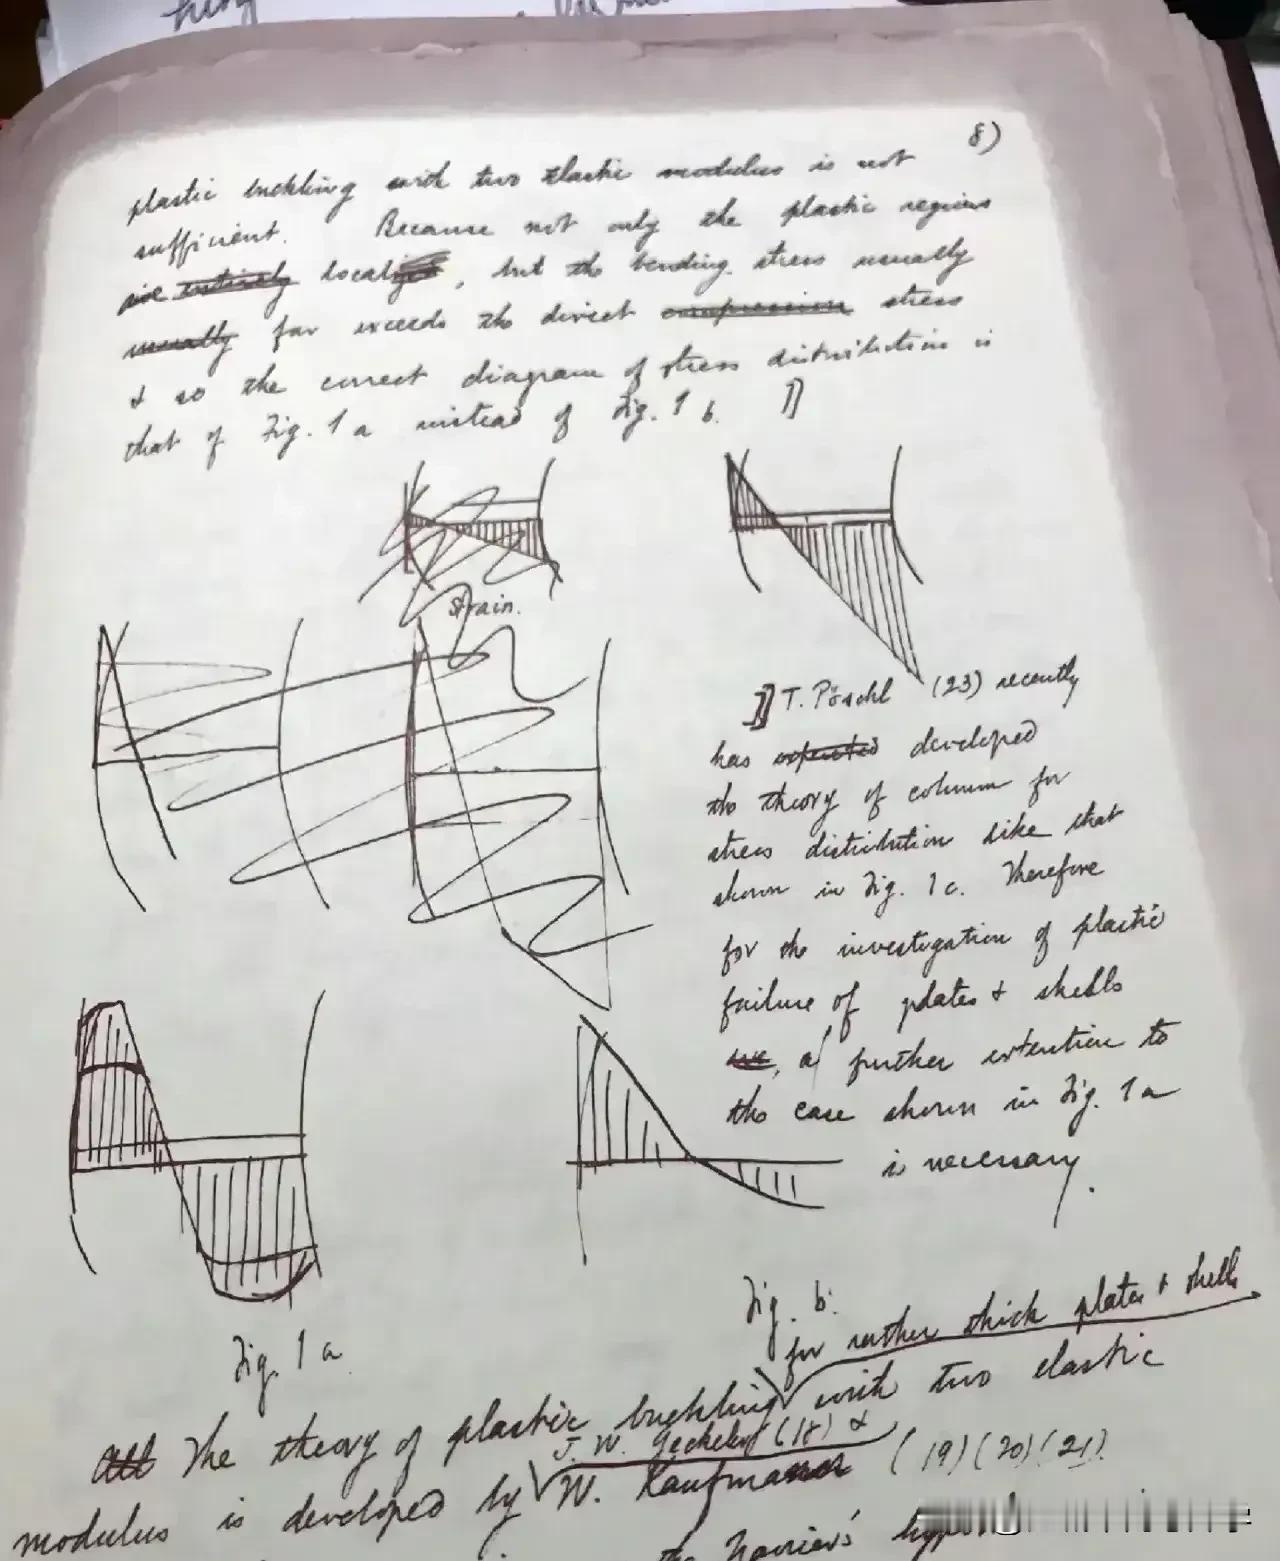 8)
plastic buckling with two elastic modulus is not
sufficient. Because not only the plastic regions
are entirely local, but the bending stress usually
usually far exceeds the direct compression stress
& so the correct diagram of stress distribution is
that of Fig. 1a instead of Fig. 1 b. ]]
strain.
]] T. Pöschl (23) recently
has developed
the theory of column for
stress distribution like that
shown in Fig. 1c. Therefore
for the investigation of plastic
failure of plates & shells
, a further extention to
the case shown in Fig. 1a
is necessary.
Fig. 1a
Fig. b.
for rather thick plates & shells
All The theory of plastic buckling with two elastic
J. W. Geckeler (18) &
modulus is developed by W. Kaufmann (19) (20) (21).
the Navier's